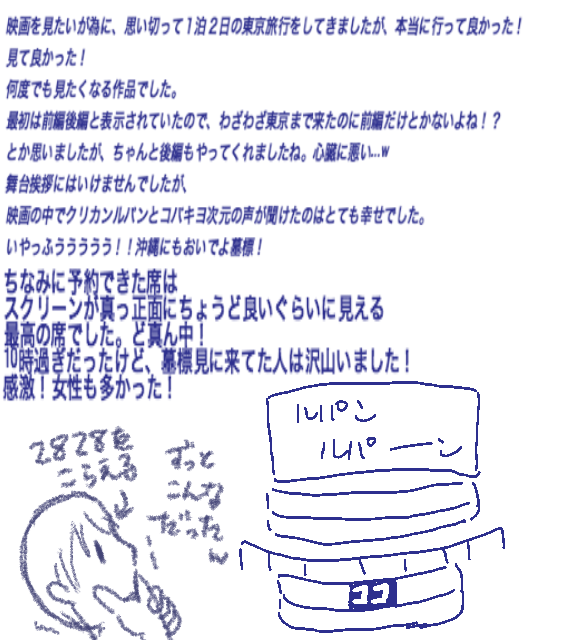 映画を見たいが為に、思い切って１泊２日の東京旅行をしてきましたが、本当に行って良かった！
見て良かった！
何度でも見たくなる作品でした。
最初は前編後編と表示されていたので、わざわざ東京まで来たのに前編だけとかないよね！？
とか思いましたが、ちゃんと後編もやってくれましたね。心臓に悪い…w
舞台挨拶にはいけませんでしたが、
映画の中でクリカンルパンとコバキヨ次元の声が聞けたのはとても幸せでした。
いやっふううううう！！沖縄にもおいでよ墓標！
ちなみに予約できた席は
スクリーンが真っ正面にちょうど良いぐらいに見える
最高の席でした。ど真ん中！
10時過ぎだったけど、墓標見に来てた人は沢山いました！
感激！女性も多かった！
ルパン
ルパーン
2828を
こらえる
ずっと
こんな
だった
w
ココ